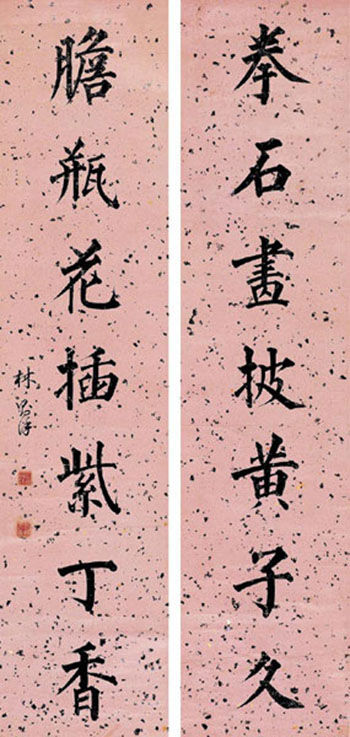 拳石畫披黄子久
膽瓶花插紫丁香
林則徐